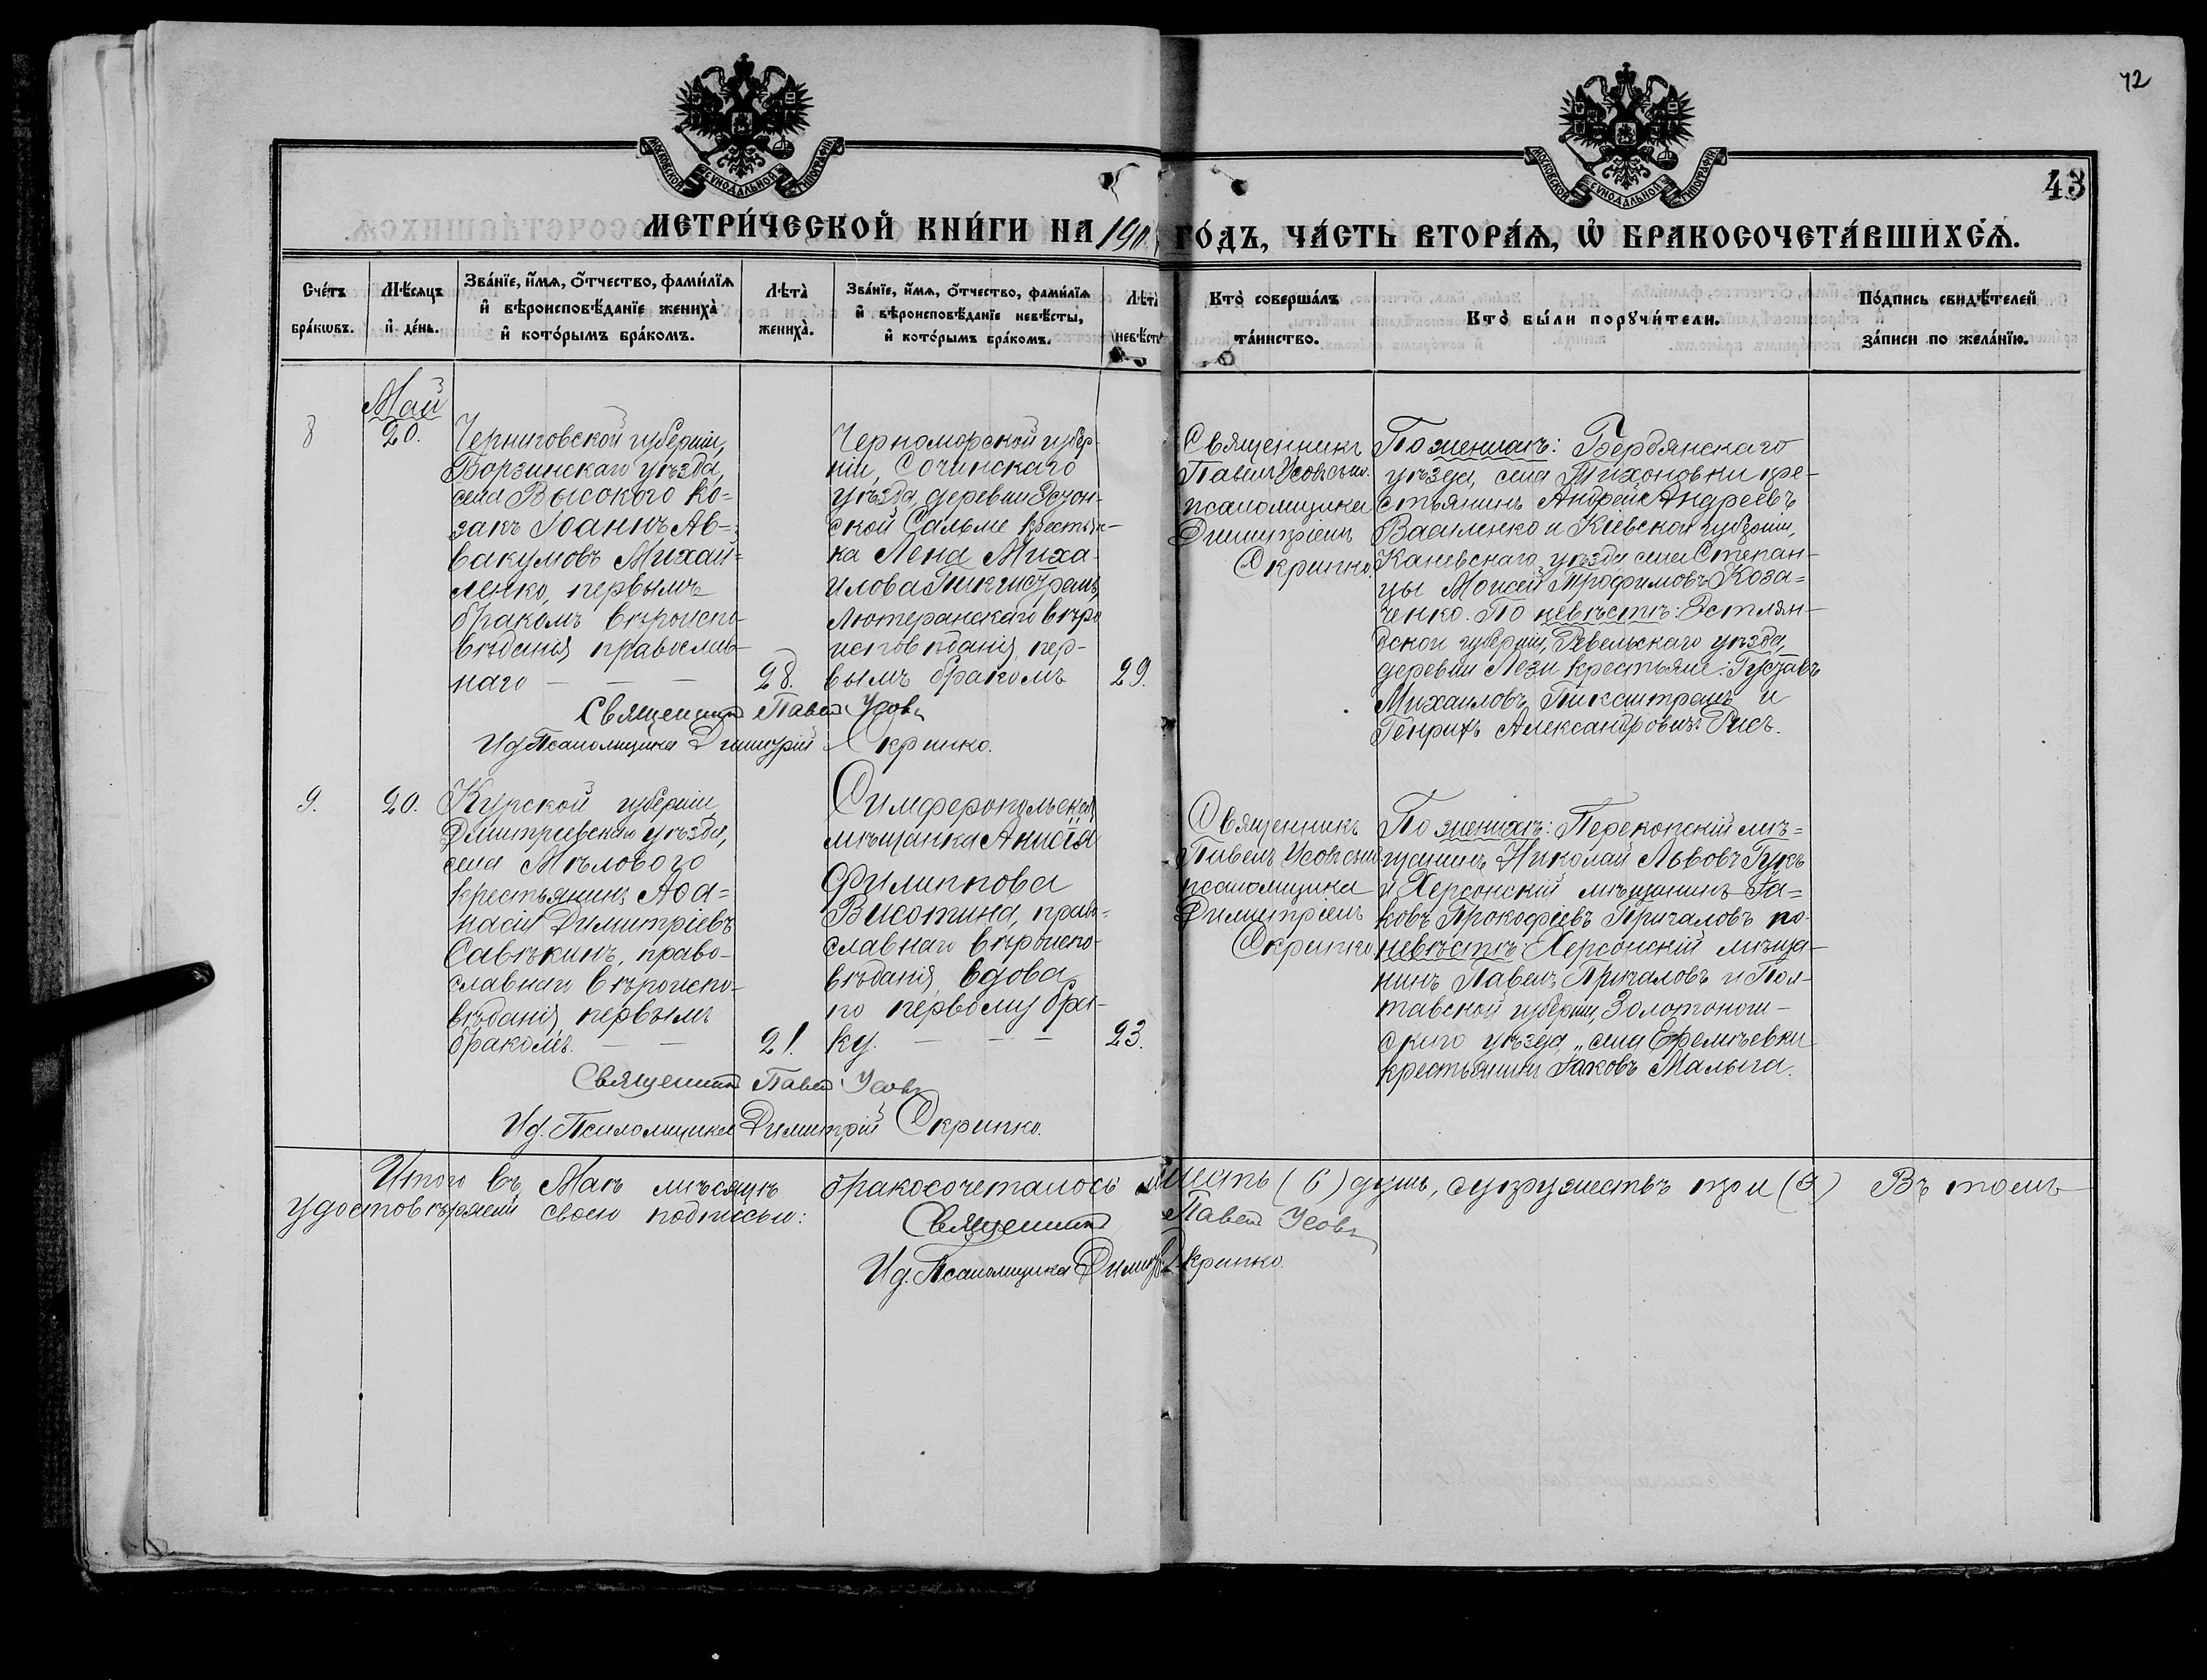 42
МОСКОВСКОЙ СѴНОДАЛЬНОЙ ТИПОГРАФІИ
МОСКОВСКОЙ СѴНОДАЛЬНОЙ ТИПОГРАФІИ
43
МЕТРИ́ЧЕСКОЙ КНИ́ГИ НА 190 ГО́ДЪ, ЧА́СТЬ ВТОРА́Ѧ, Ѡ҆ БРАКОСОЧЕТА́ВШИХСѦ.
Сче́тъ бра́кѡвъ.
Мѣ́сяцъ и҆ де́нь.
Зва́нїе, и҆́мѧ, ѻ҆́тчество, фами́лїѧ
и҆ вѣроисповѣ́данїе жениха̀
и҆ кото́рымъ бра́комъ.
Лѣта̀ жениха̀.
Зва́нїе, и҆́мѧ, ѻ҆́тчество, фами́лїѧ
и҆ вѣроисповѣ́данїе невѣ́сты,
и҆ кото́рымъ бра́комъ.
Лѣта̀ невѣ́сты
Кто̀ соверша́лъ та́инство.
Кто̀ бы́ли порꙋчи́тели.
По́дпись свидѣ́телей за́писи по жела́нїю.
Май
8
20.
Черниговской губерніи,
Борзинскаго уѣзда,
села Высокого ко-
закъ Іоаннъ Ав-
вакумовъ Михай-
ленко, первымъ
бракомъ вѣроиспо-
вѣданія православ-
наго
28.
Черноморской губер-
ніи, Сочинскаго
уѣзда, деревни Эстон-
ской Сальме крестьян-
ка Лена Миха-
илова Пикистремъ,
Лютеранскаго вѣро
исповѣданія, пер-
вымъ бракомъ
29.
Священникъ
Павелъ Усовъ съ и.
псаломщика
Димитріемъ
Скрипко.
По женихѣ: Бердянскаго
уѣзда, села Тихоновки кре-
стьянинъ Андрей Андреевъ
Василенко и Кіевской губерніи,
Каневскаго уѣзда села Степан-
цы Моисей Трофимовъ Коза-
ченко. По невѣстѣ: Эстлян-
дской губерніи, Ревельскаго уѣзда,
деревни Лези крестьяне: Густавъ
Михаиловъ Пикштремъ и
Генрихъ Александровичъ Рисъ.
Священникъ Павелъ Усовъ
И.д. Псаломщика Димитрій Скрипко.
9.
20.
Курской губерніи
Дмитріевскаго уѣзда,
села Мѣлового
крестьянинъ Аѳа-
насій Димитріевъ
Савѣкинъ, право-
славнаго вѣроиспо-
вѣданія, первымъ
бракомъ.
21.
Симферопольская
мѣщанка Анисія
Филиппова
Висотина, право-
славнаго вѣроиспо-
вѣданія, вдова
по первому бра-
ку.
23.
Священникъ
Павелъ Усовъ съ и.д.
псаломщика
Димитріемъ
Скрипко
По женихѣ: Перекопскій мѣ-
щанинъ Николай Львовъ Гукъ
и Херсонскій мѣщанинъ Іа-
ковъ Прокофіевъ Причаловъ по
невѣстѣ: Херсонскій мѣща-
нинъ Павелъ Причаловъ и Пол-
тавской губерніи, Золотонош-
скаго уѣзда, села Ефемѣевки
крестьянинъ Іаковъ Малыга.
Священникъ Павелъ Усовъ
И.д. Псаломщика Димитрій Скрипко.
Итого въ Маѣ мѣсяцѣ бракосочеталось шесть (6) душъ, супружествъ три (3) Въ томъ
удостовѣряемъ своею подписью:
Священникъ Павелъ Усовъ
И.д. Псаломщика Димитрій Скрипко.